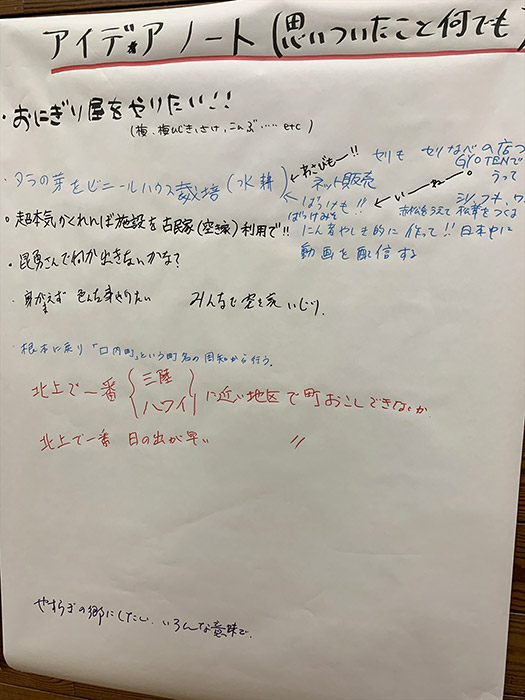 アイデアノート(思いついたこと何でも)
・おにぎり屋をやりたい!!
(梅、梅ひじき、さけ、こんぶ……etc)
・タラの芽をビニールハウス栽培(水耕)
←わさびも〜!! セリも セリなべの店つ
GYOTENで
うって
ネット販売
←ばっけも!! ←いーねー。
ばっけみそ
赤松をうえて松茸をつくる
・超本気かくれんぼ施設を古民家(空き家)利用で!!
にん者やしき的に作って!!日本中に
動画を配信する
・昆勇さんで何か出きないかな?
・身がまえず 色んな事やりたい みんなで空き家いじり.
・根本に戻り「口内町」という町名の周知から行う.
北上で一番{三陸 ハワイ}に近い地区で町おこしできないか
北上で一番 日の出が早い 〃
やすらぎの郷にしたい.いろんな意味で.